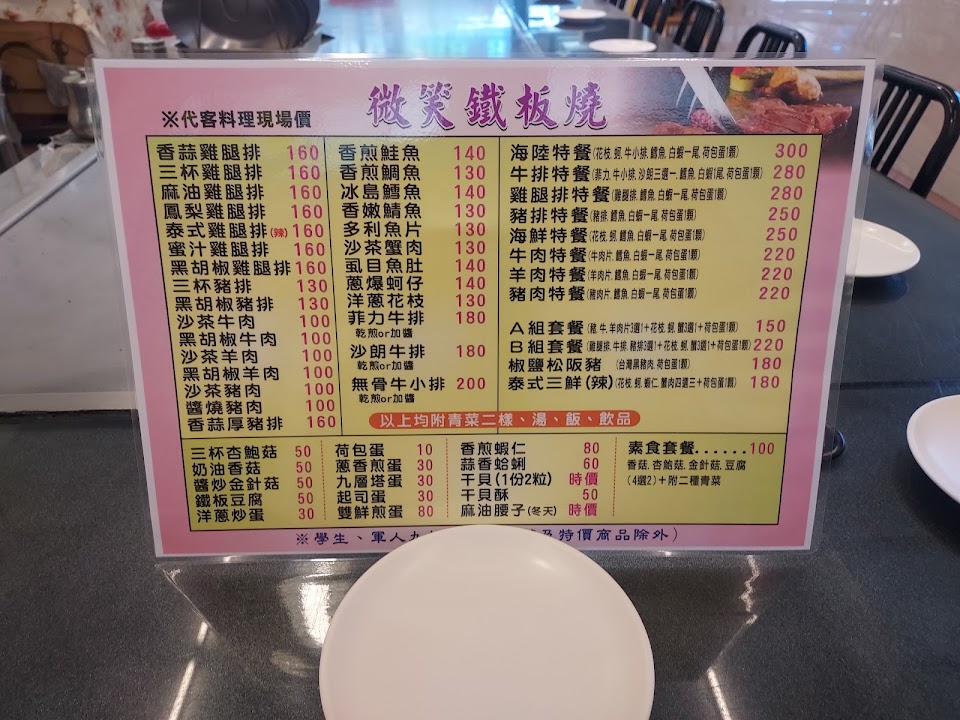 ※代客料理現場價
微笑鐵板燒
香蒜雞腿排 160
三杯雞腿排 160
麻油雞腿排 160
鳳梨雞腿排 160
泰式雞腿排(辣) 160
蜜汁雞腿排 160
黑胡椒雞腿排 160
三杯豬排 130
黑胡椒豬排 130
沙茶牛肉 100
黑胡椒牛肉 100
沙茶羊肉 100
黑胡椒羊肉 100
沙茶豬肉 100
醬燒豬肉 100
香蒜厚豬排 160
香煎鮭魚 140
香煎鯛魚 130
冰島鱈魚 140
香嫩鯖魚 130
多利魚片 130
沙茶蟹肉 130
虱目魚肚 140
蔥爆蚵仔 140
洋蔥花枝 130
菲力牛排 180
乾煎or加醬
沙朗牛排 180
乾煎or加醬
無骨牛小排 200
乾煎or加醬
海陸特餐(花枝, 蚵, 牛小排, 鱈魚, 白蝦一尾, 荷包蛋1顆) 300
牛排特餐(菲力, 牛小排, 沙朗三選一, 鱈魚, 白蝦1尾, 荷包蛋1顆) 280
雞腿排特餐(雞腿排, 鱈魚, 白蝦一尾, 荷包蛋1顆) 280
豬排特餐(豬排, 鱈魚, 白蝦一尾, 荷包蛋1顆) 250
海鮮特餐(花枝, 蚵, 鱈魚, 白蝦一尾, 荷包蛋1顆) 250
牛肉特餐(牛肉片, 鱈魚, 白蝦一尾, 荷包蛋1顆) 220
羊肉特餐(羊肉片, 鱈魚, 白蝦一尾, 荷包蛋1顆) 220
豬肉特餐(豬肉片, 鱈魚, 白蝦一尾, 荷包蛋1顆) 220
A組套餐(豬, 牛, 羊肉片3選1+花枝, 蚵, 蟹3選1+荷包蛋1顆) 150
B組套餐(雞腿排, 牛排, 豬排3選1+花枝, 蚵, 蟹3選1+荷包蛋1顆) 220
椒鹽松阪豬 (台灣黑豬肉, 荷包蛋1顆) 180
泰式三鮮(辣)(花枝, 蚵, 蝦仁, 蟹肉四選三+荷包蛋1顆) 180
以上均附青菜二樣、湯、飯、飲品
三杯杏鮑菇 50
奶油香菇 50
醬炒金針菇 50
鐵板豆腐 50
洋蔥炒蛋 30
荷包蛋 10
蔥香煎蛋 30
九層塔蛋 30
起司蛋 30
雙鮮煎蛋 80
香煎蝦仁 80
蒜香蛤蜊 60
干貝(1份2粒) 時價
干貝酥 50
麻油腰子(冬天) 時價
素食套餐......100
香菇, 杏鮑菇, 金針菇, 豆腐
(4選2)+附二種青菜
※學生、軍人九
及特價商品除外)